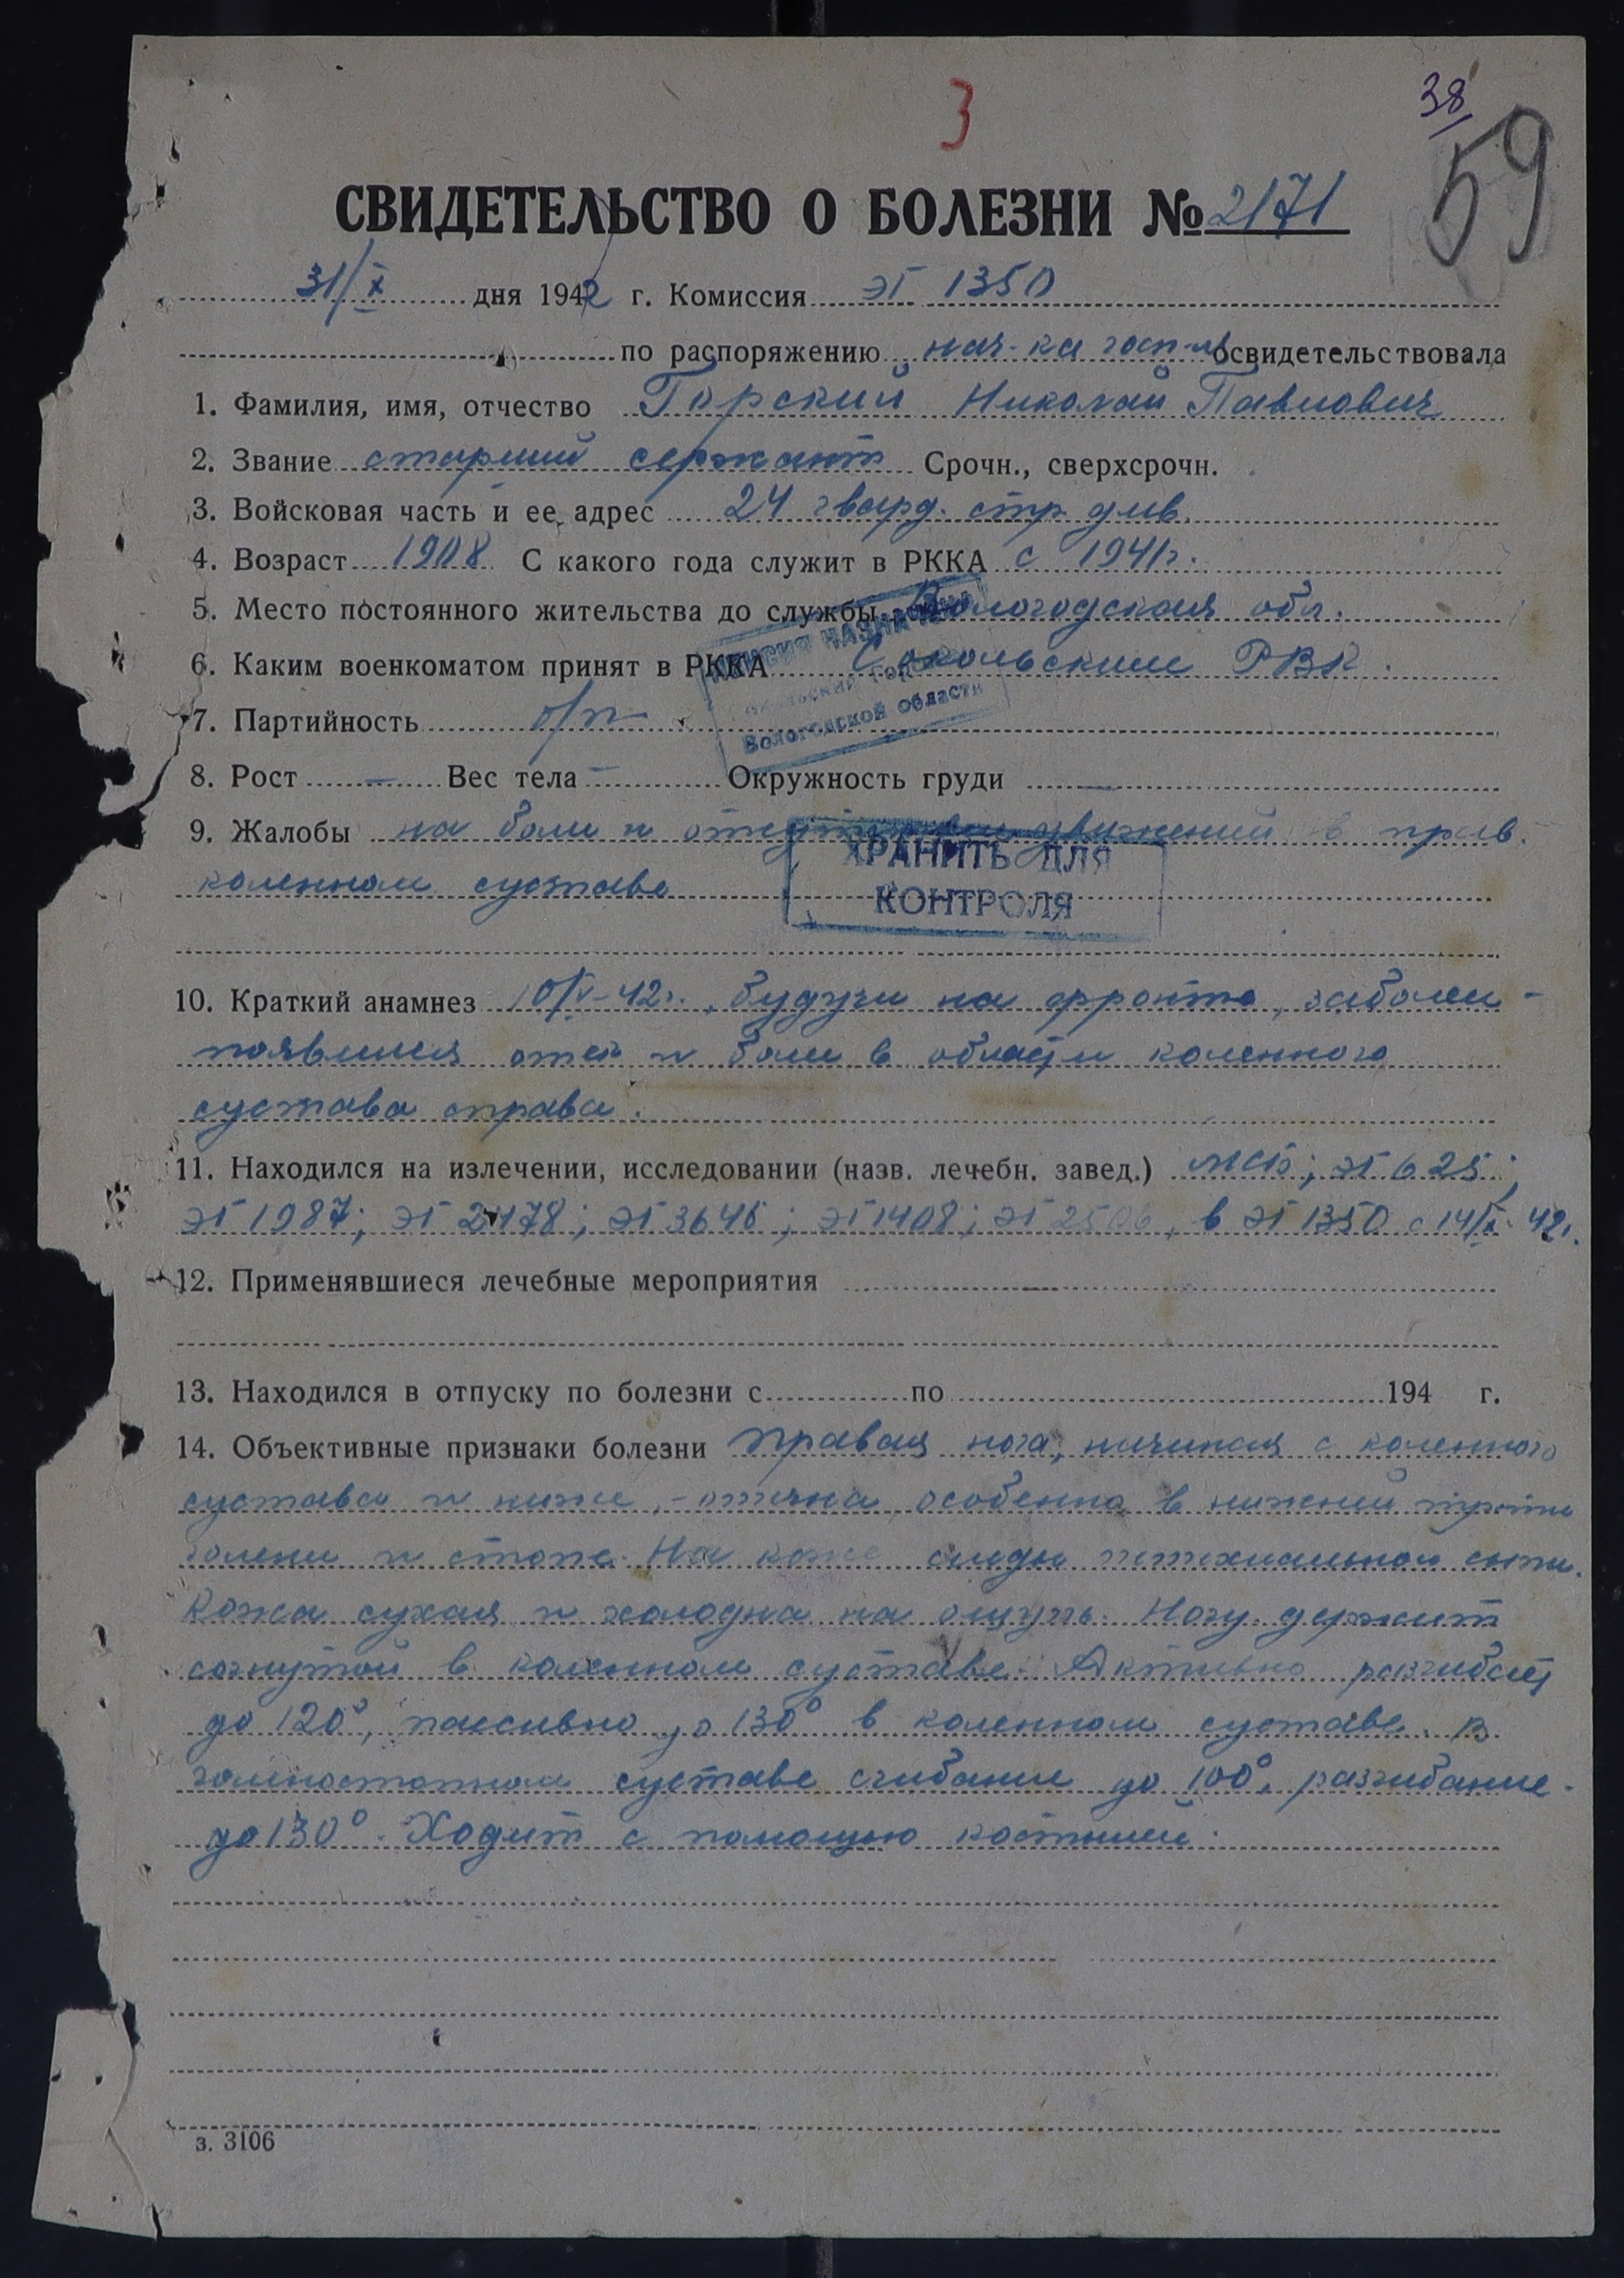 3
38
59
СВИДЕТЕЛЬСТВО О БОЛЕЗНИ № 2171
31/X дня 1942 г. Комиссия ЭГ 1350
по распоряжению нач-ка госп-ля освидетельствовала
1. Фамилия, имя, отчество Горский Николай Павлович
2. Звание старший сержант Срочн., сверхсрочн.
3. Войсковая часть и ее адрес 24 гвард. стр. див.
4. Возраст 1908 С какого года служит в РККА с 1941г.
5. Место постоянного жительства до службы Вологодская обл.
ПЕНСИЯ НАЗНАЧЕНА
6. Каким военкоматом принят в РККА Сокольским РВК.
Вологодской области
7. Партийность б/п
8. Рост — Вес тела — Окружность груди —
9. Жалобы на боли и движений в прав.
коленном суставе
ХРАНИТЬ ДЛЯ
КОНТРОЛЯ
10. Краткий анамнез 10/V-42г., будучи на фронте, заболел -
появился отек и боли в области коленного
сустава справа.
11. Находился на излечении, исследовании (назв. лечебн. завед.) МСБ; ЭГ 625;
ЭГ 1987; ЭГ 2478; ЭГ 3646; ЭГ 1408; ЭГ 2506, в ЭГ 1350 с 14/X-42г.
12. Применявшиеся лечебные мероприятия —
13. Находился в отпуску по болезни с по 194 г.
14. Объективные признаки болезни Правая нога, начиная с коленного
сустава и ниже, - отечна, особенно в нижней трети
голени и стопе. На коже следы петехиальной сыпи.
Кожа сухая и холодна на ощупь. Ногу держит
согнутой в коленном суставе. Активно разгибает
до 120°, пассивно до 130° в коленном суставе. В
голеностопном суставе сгибание до 100°, разгибание -
до 130°. Ходит с помощью костылей.
з. 3106